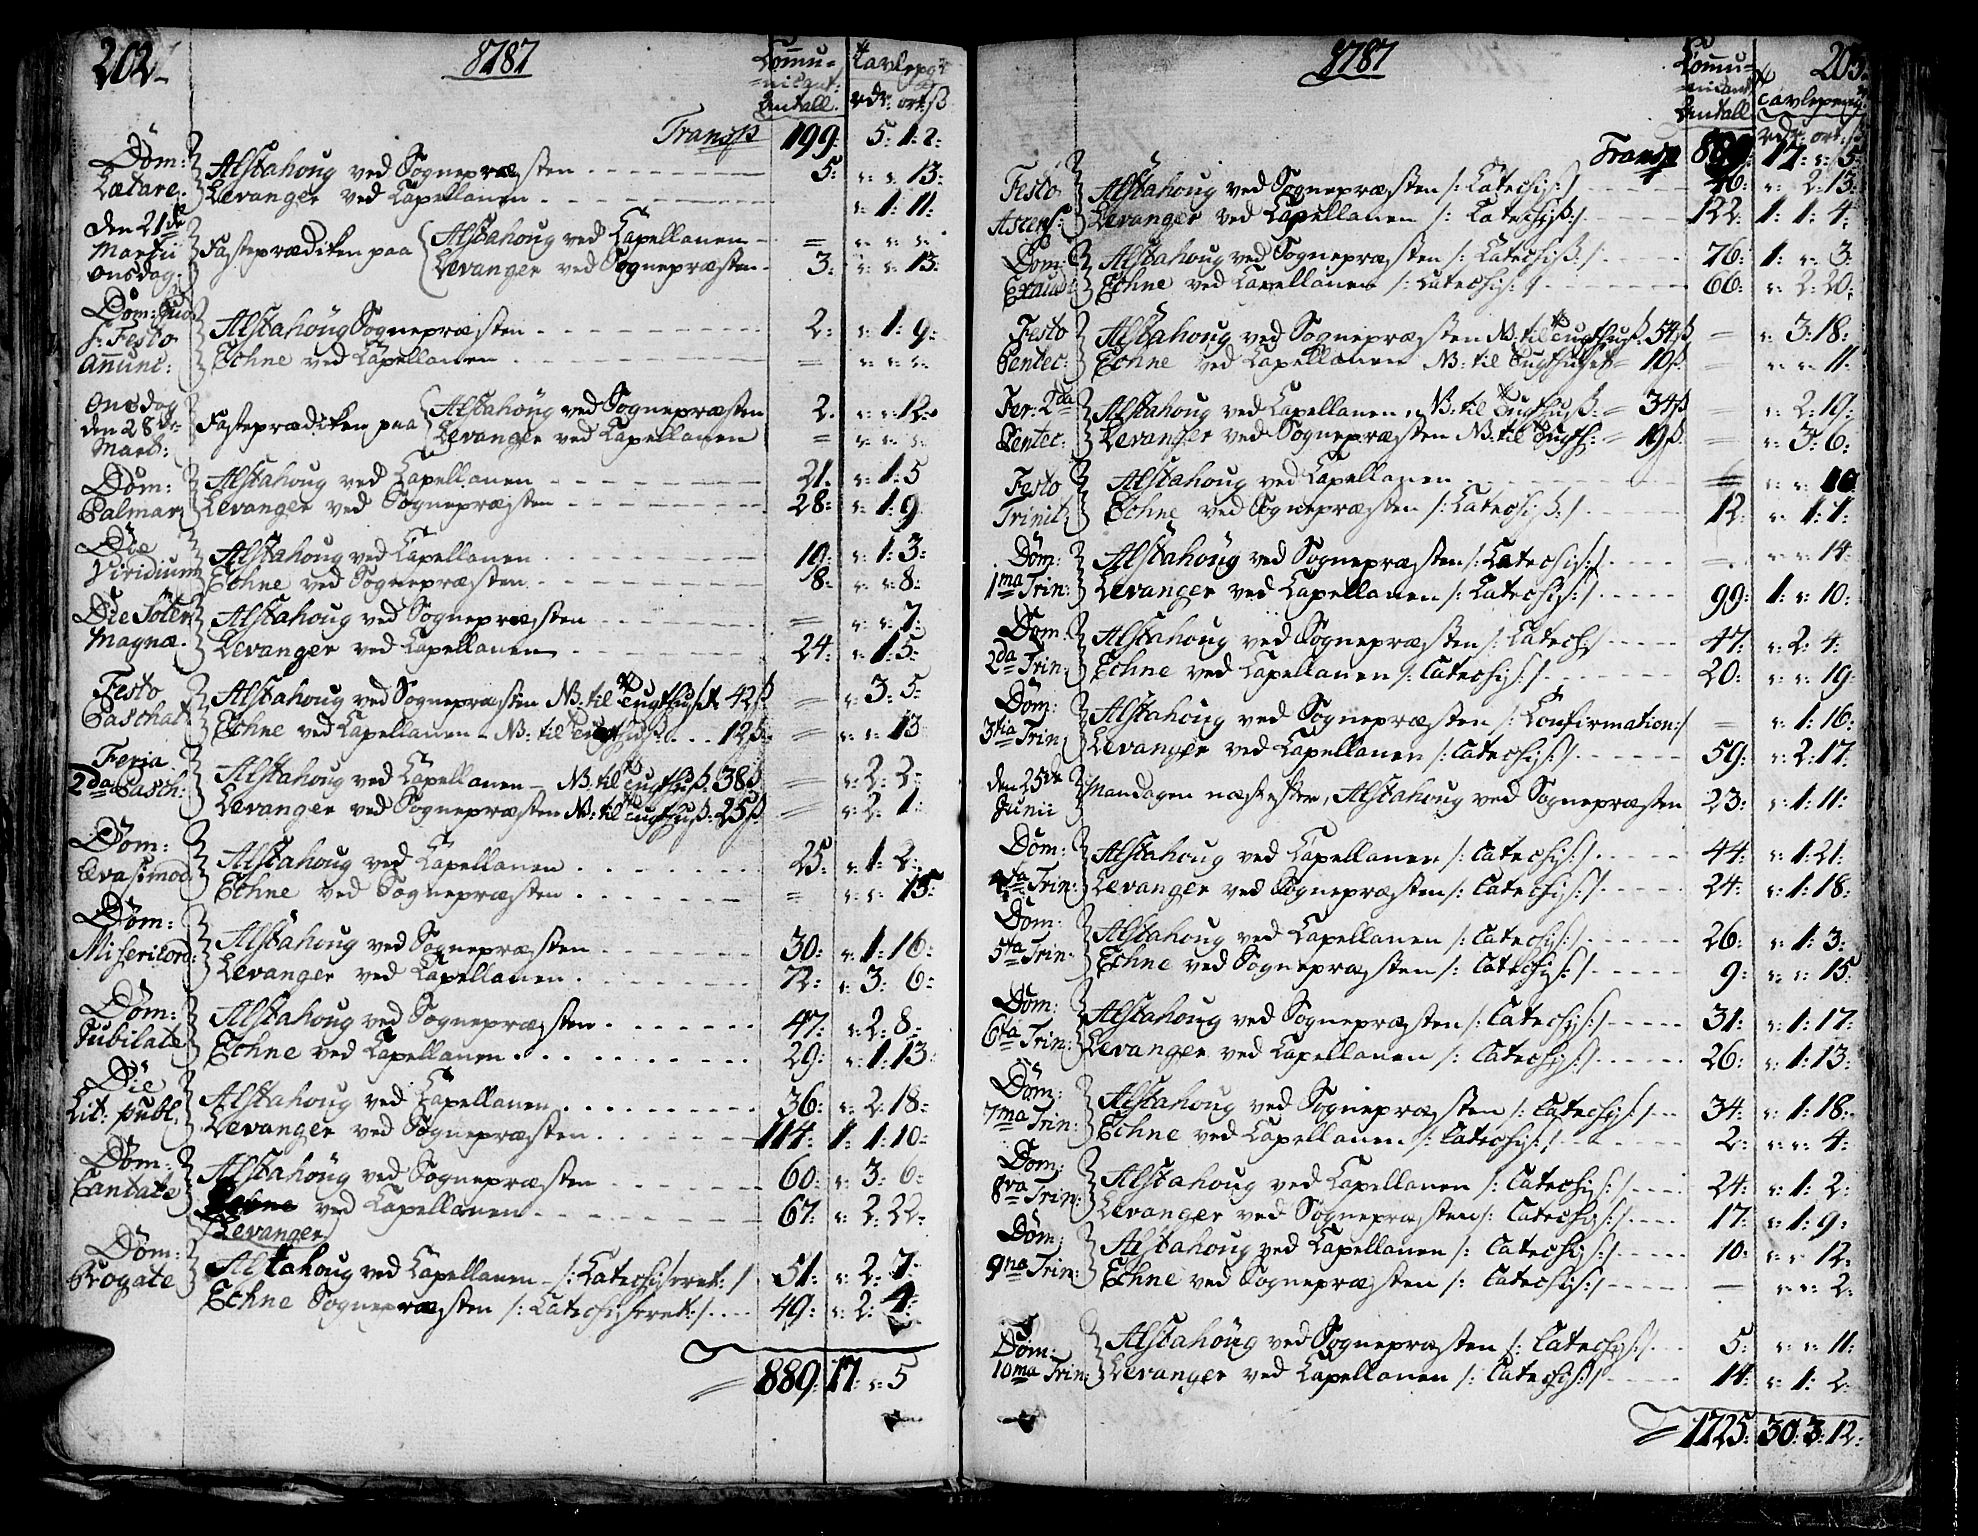 202
1787
Commu-
nicant:
Antall.
Tavlepg:
rdr: ort: ß
Transp 199: 5: 1: 2:
Dom: Lætare. Alstahoug ved Sognepræsten 5: „ „ 13:
Levanger ved Capellanen „ 1: 11:
den 21de Martii onsdag. Fasteprædiken paa Alstahoug ved Capellanen = „ „ „
Levanger ved Sognepræsten 3: „ „ 13:
Dom: Jud: f: Festo Anunc: Alstahoug Sognepræsten 2: „ 1: 9:
Echne ved Capellanen = „ „ „
Onsdag den 28de Mart: Fasteprædiken paa Alstahoug ved Sognepræsten 2. „ „ 12.
Levanger ved Capellanen = „ „ „
Dom: Palmar: Alstahoug ved Capellanen 21. „ 1: 5
Levanger ved Sognepræsten 28: „ 1: 9
Die Viridium Alstahoug ved Capellanen 10: „ 1: 3:
Echne ved Sognepræsten 8: „ „ 8:
Die Solen Magnæ. Alstahoug ved Sognepræsten = „ „ 7.
Levanger ved Capellanen 24: „ 1: 5:
Festo Paschat: Alstahoug ved Sognepræsten NB: til Tugthuset 42ß = „ 3: 5:
Echne ved Capellanen NB: til Tugthuß: 12ß: = „ „ 13
Feria 2da Pasch: Alstahoug ved Capellanen NB: til Tugthuß: 38ß = „ 2: 2:
Levanger ved Sognepræsten NB: til Tugthuß: 25ß: = „ 2: 1:
Dom: Qvasimod: Alstahoug ved Capellanen 25: „ 1: 2:
Echne ved Sognepræsten = „ „ 15:
Dom: Misericord: Alstahoug ved Sognepræsten 30: „ 1: 16:
Levanger ved Capellanen 72: „ 3: 6:
Dom: Jubilate Alstahoug ved Sognepræsten 47: „ 2: 8:
Echne ved Capellanen 29: „ 1: 13:
Die Lit: publ: Alstahoug ved Capellanen 36: „ 2: 18:
Levanger ved Sognepræsten 114: 1: 1: 10:
Dom: Cantate Alstahoug ved Sognepræsten 60: „ 3: 6:
Echne ved Capellanen 67: „ 2: 22:
Levanger
Dom: Rogate Alstahoug ved Capellanen /: Catechiseret: / 51: „ 2: 7:
Echne Sognepræsten /: Catechiseret: / 49: „ 2: 4:
= 889: 17: „ 5
1787
Commu-
nicant
Antall
203.
Tavlepeng:
rdr: ort: ß
Transp 889: 17: „ 5:
Festo Ascens: Alstahoug ved Sognepræsten /: Catechis: / 46: „ 2: 13:
Levanger ved Capellanen /: Catechiß: / 122: 1: 1: 4:
Dom: Exaudi: Alstahoug ved Sognepræsten /: Catechiß: / 76: 1: „ 3:
Echne ved Capellanen /: Catechis: / 66: „ 2: 20:
Festo Pentec: Alstahoug ved Sognepræsten NB: til Tugthuß: 54ß = „ 3: 18:
Echne ved Capellanen NB: til Tugthuset = 10ß: = „ „ 11:
Fer: 2da Pentec: Alstahoug ved Capellanen NB: til Tugthuß: = 34ß = „ 2: 19:
Levanger ved Sognepræsten NB: til Tugth: = 19ß: = „ 3: 6:
Festo Trinit: Alstahoug ved Capellanen „ „ 10
Echne ved Sognepræsten /: Catechiß: / 12: „ 1: 1:
Dom: 1ma Trin: Alstahoug ved Sognepræsten /: Catechis: / = „ „ 14:
Levanger ved Capellanen /: Catechis: / 99: 1: „ 10:
Dom: 2da Trin: Alstahoug ved Sognepræsten /: Catech: / 47: „ 2: 4:
Echne ved Capellanen /: Catechis: / 20: „ „ 19:
Dom: 3tia Trin: Alstahoug ved Sognepræsten /: Confirmation: / = „ 1: 16:
Levanger ved Capellanen /: Catechis: / 59: „ 2: 17:
den 25de Junii Mandagen næstefter, Alstahoug ved Sognepræsten 23: „ 1: 11:
Dom: 4ta Trin: Alstahoug ved Capellanen /: Catechis: / 44: „ 1: 21:
Levanger ved Sognepræsten /: Catechis: / 24: „ 1: 18:
Dom: 5ta Trin: Alstahoug ved Capellanen /: Catechis: / 26: „ 1: 3:
Echne ved Sognepræsten /: Catechis: / 9: „ „ 15
Dom: 6ta Trin: Alstahoug ved Sognepræsten /: Catechis: / 31: „ 1: 17:
Levanger ved Capellanen /: Catechis: / 26: „ 1: 13:
Dom: 7ma Trin: Alstahoug ved Sognepræsten /: Catechis: / 34: „ 1: 18:
Echne ved Capellanen /: Catechis: / 2: „ „ 4:
Dom 8va Trin: Alstahoug ved Capellanen /: Catechis: / 24: „ 1: 2:
Levanger ved Sognepræsten /: Catechis: / 17: „ 1: 9:
Dom: 9na Trin: Alstahoug ved Capellanen /: Catechis: / 10: „ „ 12:
Echne ved Sognepræsten /: Catechis: / — „ „ 2:
Dom: 10ma Trin: Alstahoug ved Sognepræsten /: Catechis: / 5: „ „ 11:
Levanger ved Capellanen /: Catechis: / 14: „ 1: 2:
= 1725: 30: 3: 12: